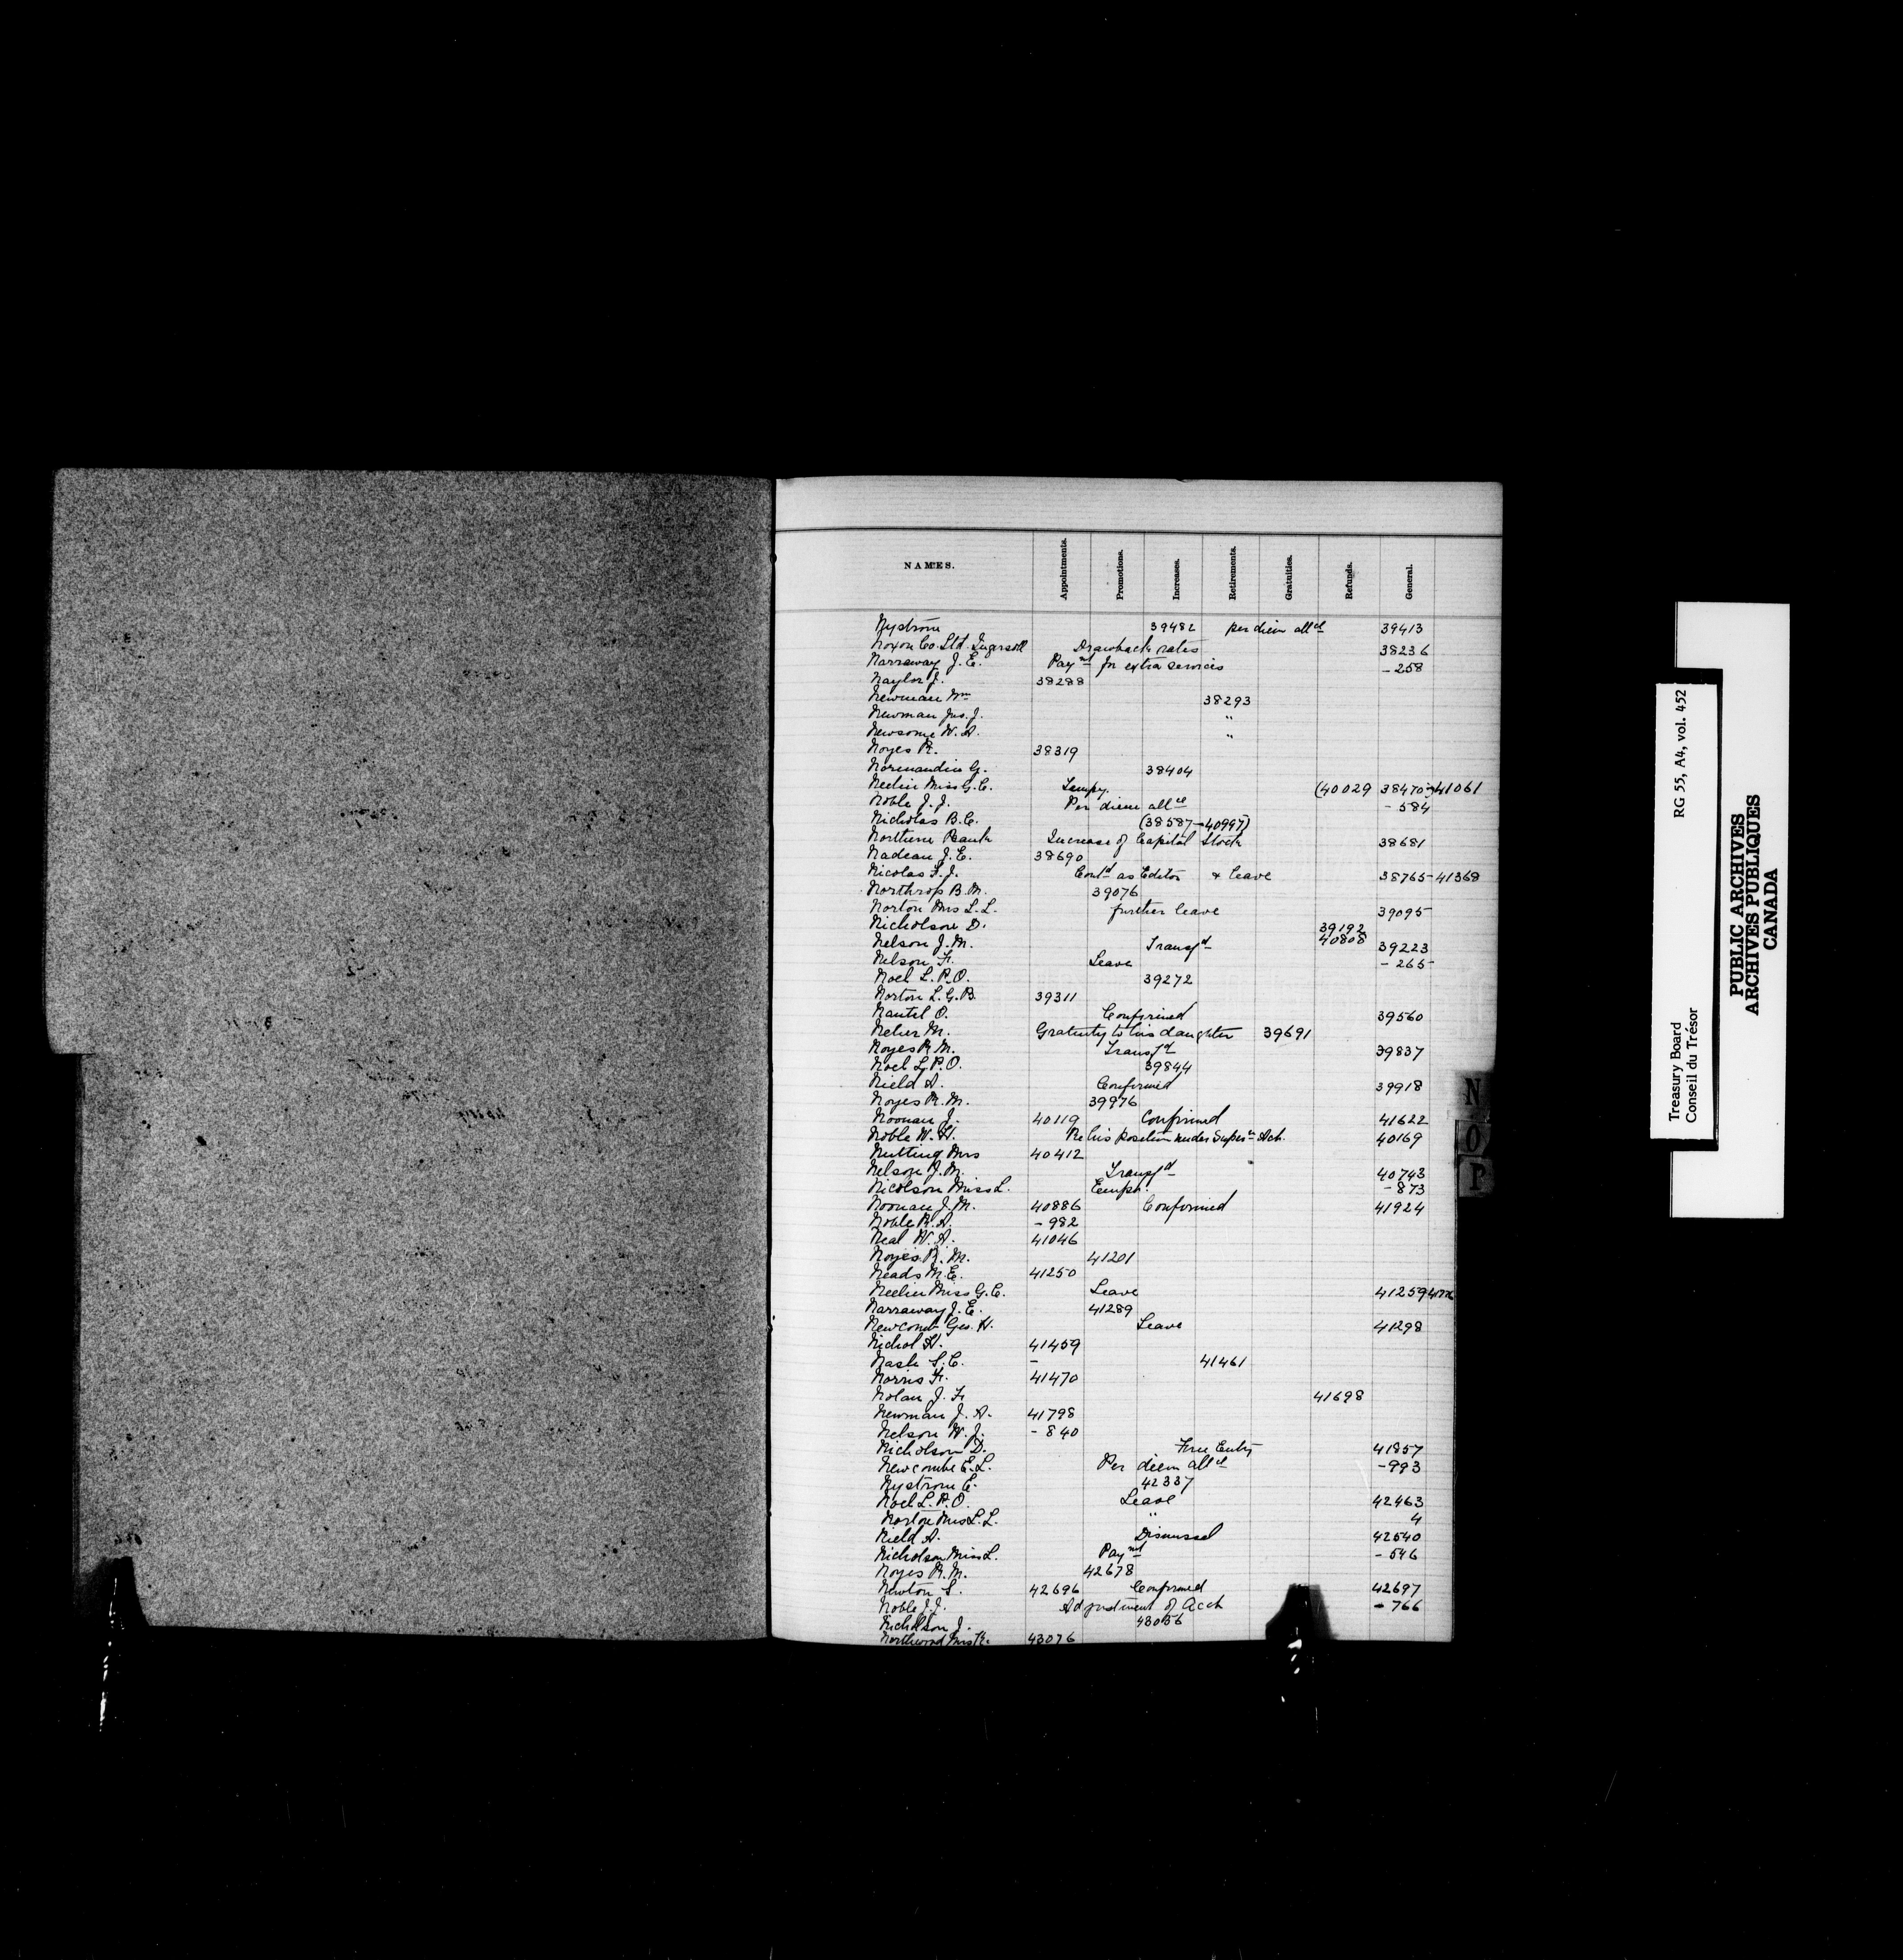 NAMES. Appointments. Promotions. Increases. Retirements. Gratuities. Refunds. General.
Nystrom 39482 per diem allce 39413
Noxon Co. Ltd. Ingersoll Drawback rates 38236
Narraway J. E. Paymt for extra services - 258
Naylor J. 38288
Newman Wm 38293
Newman Jno. J. "
Newsome W. A. "
Noyes R. 38319
Normandin G. 38404
Neelin Miss G. C. Tempy. (40029 38470 - 41061
Noble J. J. Per diem allce - 584
Nicholas B. C. (38587 - 40997)
Northern Bank Increase of Capital Stock 38681
Nadeau J. E. 38690
Nicolas F. J. Contd as Editor & leave 38765 - 41368
Northrop B. M. 39076
Norton Mrs L. L. further leave 39095
Nicholson D. 39192
40808
Nelson J. M. Transfd 39223
Nelson Fr. Leave - 265
Noel L. P. O. 39272
Norton L. G. B. 39311
Nantel O. Confirmed 39560
M. Gratuity to his daughter 39691
Noyes R. M. Transfd 39837
Noel L. P. O. 39844
Nield A. Confirmed 39918
Noyes R. M. 39976
Noonan J. 40119 Confirmed 41622
Noble W. H. Re his position under Super. Act. 40169
Nutting Mrs 40412
Nelson J. M. Transfd 40743
Nicolson Miss L. Empt. - 873
Noonan J. M. 40886 Confirmed 41924
Noble R. A. - 982
Neal W. A. 41046
Noyes R. M. 41201
Neads M. E. 41250
Neelin Miss G. C. Leave 41259
Narraway J. E. 41289
Newcomb Geo. H. Leave 41298
Nichol H. 41459
Nash S. C. - 41461
Norris Fr. 41470
Nolan J. Fr 41698
Newman J. A. 41798
Nelson W. J. - 840
Nicholson D. Free Entry 41857
Newcombe E. L. Per diem allce - 993
Nystrom E. 42337
Noel L. P. O. Leave 42463
Norton Mrs L. L. " 4
Nield A. Dismissed 42540
Nicholson Miss L. Paymt - 546
Noyes R. M. 42678
Newton S. 42696 Confirmed 42697
Noble J. J. Adjustment of Acct - 766
Nicholson J. 43056
Northwood Mrs R. 43076
N
O
P
Treasury Board RG 55, A4, vol. 452
Conseil du Trésor
PUBLIC ARCHIVES
ARCHIVES PUBLIQUES
CANADA